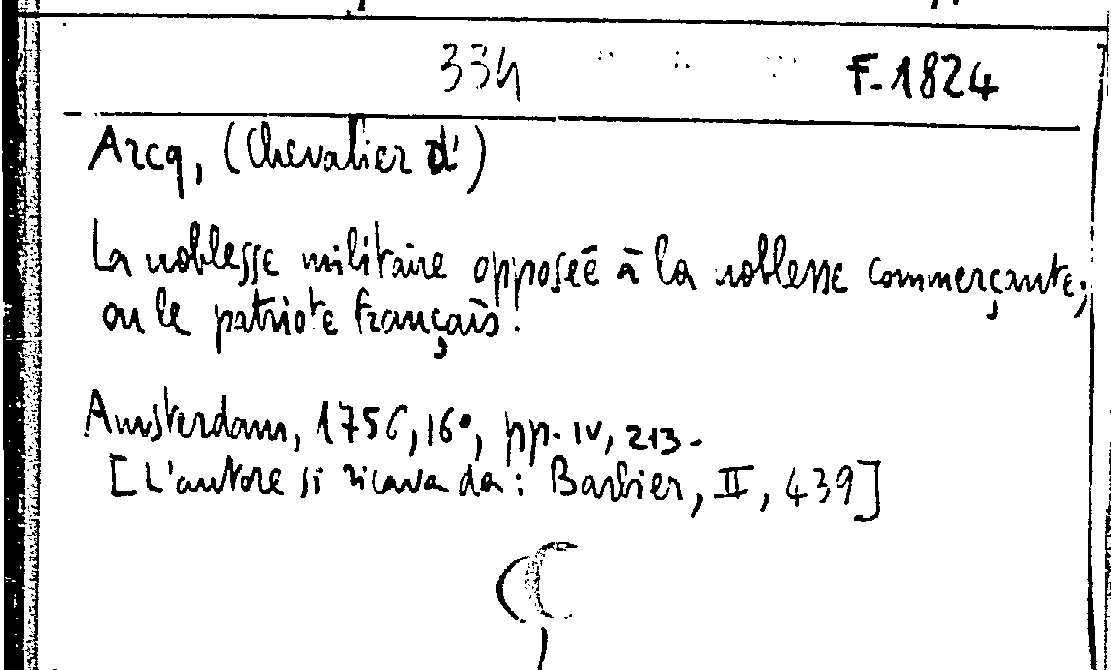 334 F.1824
Arcq, (Chevalier d')
La noblesse militaire opposée à la noblesse commerçante;
ou le patriote français.
Amsterdam, 1756, 16°, pp. IV, 213.
[L'autore si ricava da: Barbier, II, 439]